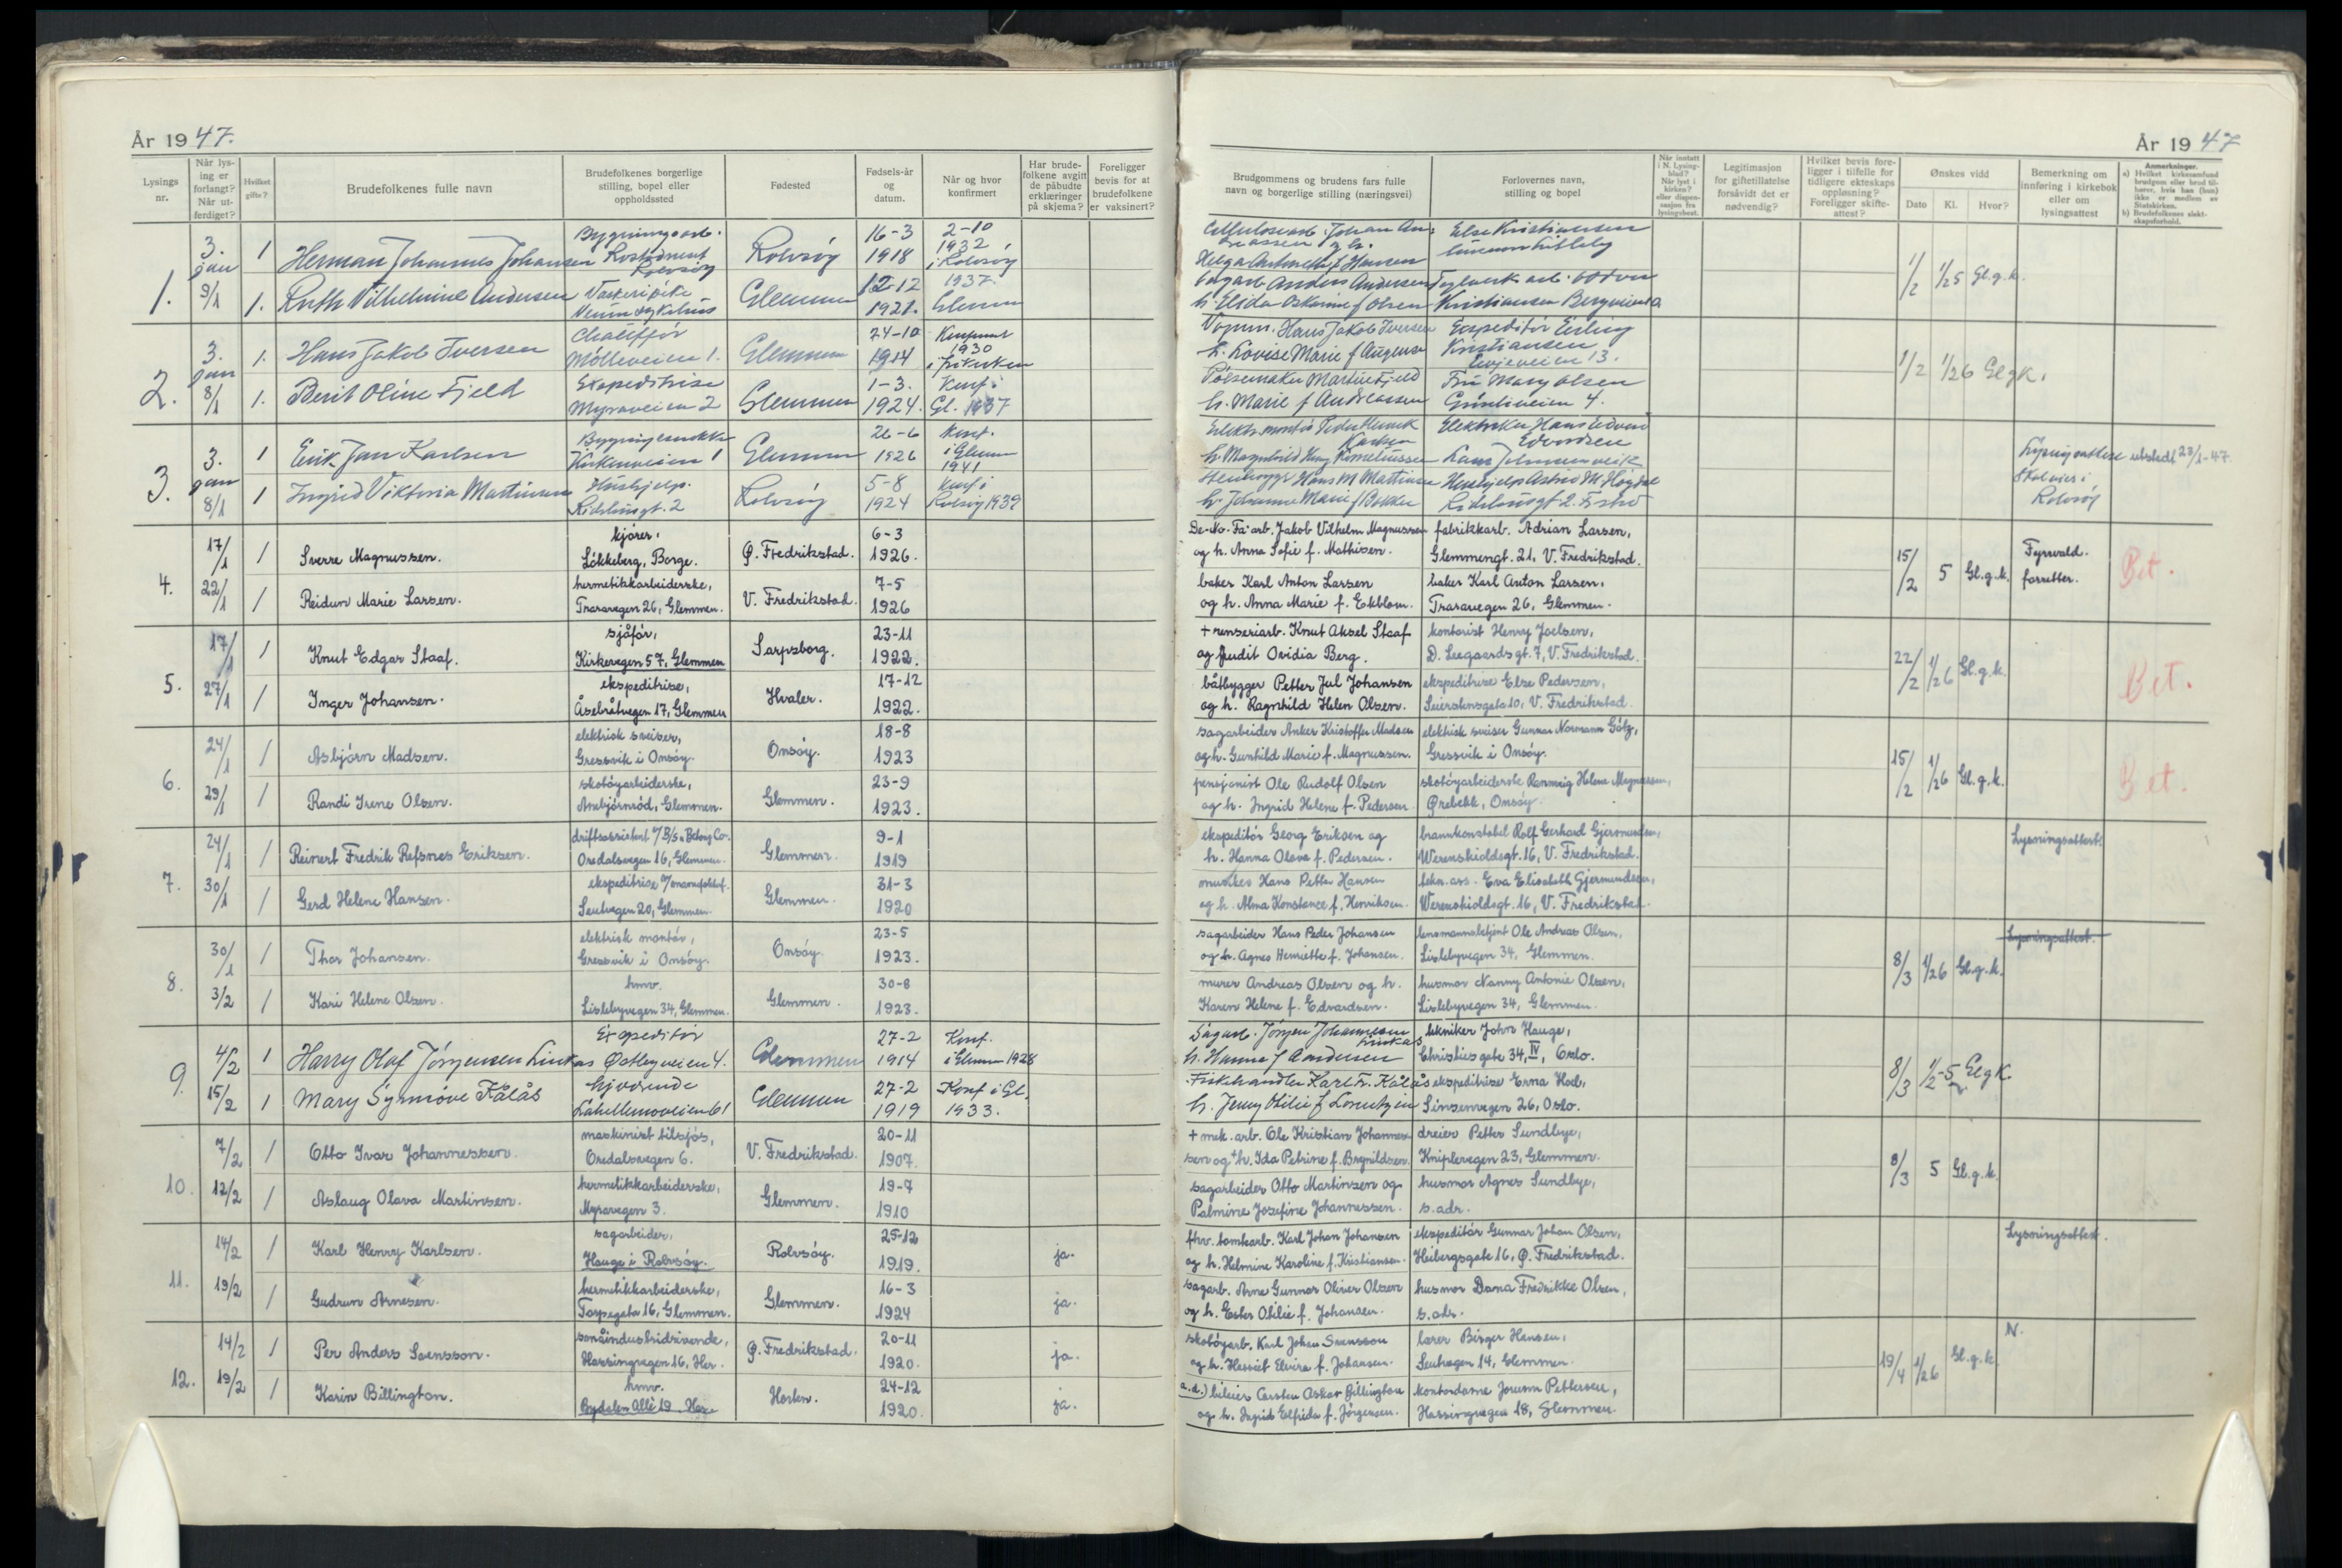 År 1947.
Lysings nr.
Når lysing er forlangt? Når utferdiget?
Hvilket gifte?
Brudefolkenes fulle navn
Brudefolkenes borgerlige stilling, bopel eller oppholdssted
Fødested
Fødsels-år og datum.
Når og hvor konfirmert
Har brudefolkene avgitt de påbudte erklæringer på skjema?
Foreligger bevis for at brudefolkene er vaksinert?
1.
3. jan 1 Herman Johannes Johansen
Bygningsarb.
Rolvsøy
16-3 1918
2-10 1932 i Rolvsøy
9/1 1. Ruth Vilhelmine Andersen
Glemmen
12-12 1921.
1937. Glemm
2.
3. jan 1. Hans Jakob Iversen
Chauffør
Mølleveien 1.
Glemmen
24-10 1914
1930
8/1 1. Berit Oline Fjeld
Ekspeditrise
Myraveien 2
Glemmen
1-3. 1924.
Konf i Gl. 1937
3.
3. jan 1 Erik Jan Karlsen
Kirkeveien 1
Glemmen
26-6 1926
Konf. i Glemm 1941
8/1 1 Ingrid Viktoria Martinsen
Hushjelp.
Rolvsøy
5-8 1924
Konf i Rolvsøy 1939
4.
17/1 1 Sverre Magnussen.
kjører,
Løkkeberg, Borge.
Ø. Fredrikstad.
6-3 1926.
22/1 1 Reidun Marie Larsen.
hermetikkarbeiderske,
Traravegen 26, Glemmen.
V. Fredrikstad.
7-5 1926
5.
17/1 1 Knut Edgar Staaf.
sjåfør,
Kirkevegen 57, Glemmen
Sarpsborg.
23-11 1922.
27/1 1 Inger Johansen.
ekspeditrise,
Åsebråtvegen 17, Glemmen
Hvaler.
17-12 1922.
6.
24/1 1 Asbjørn Madsen.
elektrisk sveiser,
Gressvik i Onsøy.
Onsøy.
18-8 1923
29/1 1 Randi Irene Olsen.
skotøyarbeiderske,
Ambjørnrød, Glemmen.
Glemmen.
23-9 1923.
7.
24/1 1 Reinert Fredrik Refsnes Eriksen.
Oredalsvegen 16, Glemmen.
Glemmen.
9-1 1919
30/1 1 Gerd Helene Hansen.
Sentvegen 20, Glemmen.
Glemmen.
31-3 1920
8.
30/1 1 Thor Johansen.
elektrisk montør,
Gressvik i Onsøy.
Onsøy.
23-5 1923.
3/2 1 Kari Helene Olsen.
hmv.
Lislebyvegen 34, Glemmen.
Glemmen.
30-8 1923.
9.
4/2 1 Harry Olaf Jørgensen Linkas
Ekspeditør
Østbyveien 4.
Glemmen
27-2 1914
Konf. i Glemm 1928
15/2 1 Mary Synnøve Kålås
hjvørende
Lahellemoveien 61
Glemmen
27-2 1919
Konf i Gl. 1933.
10.
7/2 1 Otto Ivar Johannessen.
maskinist tilsjøs,
Oredalsvegen 6.
V. Fredrikstad.
20-11 1907.
12/2 1 Aslaug Olava Martinsen.
hermetikkarbeiderske,
Myravegen 3.
Glemmen.
19-7 1910
11.
14/2 1 Karl Henry Karlsen.
sagarbeider,
Hauge i Rolvsøy.
Rolvsøy.
25-12 1919.
ja.
19/2 1 Gudrun Arnesen.
hermetikkarbeiderske,
Torpegata 16, Glemmen.
Glemmen.
16-3 1924
ja.
12.
14/2 1 Per Anders Svensson.
småindustridrivende,
Hassingvegen 16, Her.
Ø. Fredrikstad.
20-11 1920.
ja.
19/2 1 Karin Billington.
hmv.
Bydalen Allé 19
Horten.
24-12 1920.
ja.
År 1947
Brudgommens og brudens fars fulle navn og borgerlige stilling (næringsvei)
Forlovernes navn, stilling og bopel
Når inntatt i N. Lysingblad? Når lyst i kirken? eller dispensasjon fra lysingshest.
Legitimasjon for giftetillatelse forsåvidt det er nødvendig?
Hvilket bevis foreligger i tilfelle for tidligere ekteskaps oppløsning? Foreligger skifteattest?
Ønskes vidd
Dato Kl. Hvor?
Bemerkning om innføring i kirkebok eller om lysingsattest
Anmerkninger.
a) Hvilket kirkesamfund brudgom eller brud tilhører, hvis han (hun) ikke er medlem av Statskirken.
b) Brudefolkenes slektskapsforhold.
Else Kristiansen
1/2 1/25 Gl.g.k.
Anders Andersen
h. Elida Oskarine f Olsen
Hans Jakob Iversen
Ekspeditør Erling Kristiansen
h. Lovise Marie f
1/2 1/26 Gl gk.
Pølsemaker Martin Fjeld
Fru Mary Olsen
h. Marie f Andreassen
Elektriker Hans Edvard Edvardsen
Lysingsattest utstedt 23/1-47.
Skal vies i Rolvsøy
Hans M Martinsen
h. Johanne Marie f Bakken
De-No-Fa-arb. Jakob Vilhelm Magnussen
og h. Anna Sofie f. Mathisen.
fabrikkarb. Adrian Larsen,
Glemmengt. 21, V. Fredrikstad.
15/2 5 Gl.g.k.
Fyrwald. forretter.
Bet.
baker Karl Anton Larsen
og h. Anna Marie f. Ekblom.
baker Karl Anton Larsen,
Traravegen 26, Glemmen.
+ renseriarb. Knut Aksel Staaf
og Judit Ovidia Berg.
kontorist Henry Joelsen,
D. Leegaardsgt. 7, V. Fredrikstad.
22/2 1/26 Gl.g.k.
Bet.
båtbygger Petter Jul Johansen
og h. Ragnhild Helen Olsen.
ekspeditrise Else Pedersen,
Seierstensgata 10, V. Fredrikstad.
sagarbeider Anker Kristoffer Madsen
og h. Gunhild Marie f. Magnussen.
elektrisk sveiser Gunnar Normann Götz,
Gressvik i Onsøy.
15/2 1/26 Gl.g.k.
Bet.
pensjonist Ole Rudolf Olsen
og h. Ingrid Helene f. Pedersen
skotøyarbeiderske Rannveig Helene Magnussen,
Ørebekk, Onsøy.
ekspeditør Georg Eriksen og
h. Hanna Olava f. Pedersen.
brannkonstabel Rolf Gerhard Gjermundsen,
Werenskioldsgt. 16, V. Fredrikstad.
Lysningsattest.
murer Hans Petter Hansen
og h. Alma Konstance f. Henriksen.
tekn. ass. Eva Elisabeth Gjermundsen,
Werenskioldsgt. 16, V. Fredrikstad.
sagarbeider Hans Peder Johansen
og h. Agnes Henriette f. Johansen.
lensmannsbetjent Ole Andreas Olsen,
Lislebyvegen 34, Glemmen.
8/3 1/26 Gl.g.k.
Lysningsattest.
murer Andreas Olsen og h.
Karen Helene f. Edvardsen.
husmor Nanny Antonie Olsen,
Lislebyvegen 34, Glemmen.
Sagarb. Jørgen Johannesen Linkas
h. Hanna f Andersen
tekniker John Hauge,
Christiesgate 34, IV, Oslo.
8/3 1/2-5 Gl g K.
Fiskehandler Karl F. Kålås
h. Jenny Otilie f Lorentzen
ekspeditrise Erna Hoel,
Sinsenvegen 26, Oslo.
+ mek. arb. Ole Kristian Johannes-
sen og +h. Ida Petrine f. Brynildsen.
dreier Petter Sundbye,
Kniplevegen 23, Glemmen.
8/3 5 Gl.g.k.
sagarbeider Otto Martinsen og
Palmine Josefine Johannessen.
husmor Agnes Sundbye,
s. adr.
fhv. tomtearb. Karl Johan Johansen
og h. Helmine Karoline f. Kristiansen.
ekspeditør Gunnar Johan Olsen,
Heibergsgate 16, Ø. Fredrikstad.
Lysningsattest.
sagarb. Arne Gunnar Oliver Olsen
og h. Ester Otilie f. Johansen.
husmor Dama Fredrikke Olsen,
s. adr.
skotøyarb. Karl Johan Svensson
og h. Harriet Elvira f. Johansen.
lærer Birger Hansen,
Sentvegen 14, Glemmen.
19/4 1/26 Gl.g.k
N.
a.d.) bileier Carsten Oskar Billington
og h. Ingrid Elfrida f. Jørgensen.
kontordame Jorunn Pettersen,
Hassingvegen 18, Glemmen.